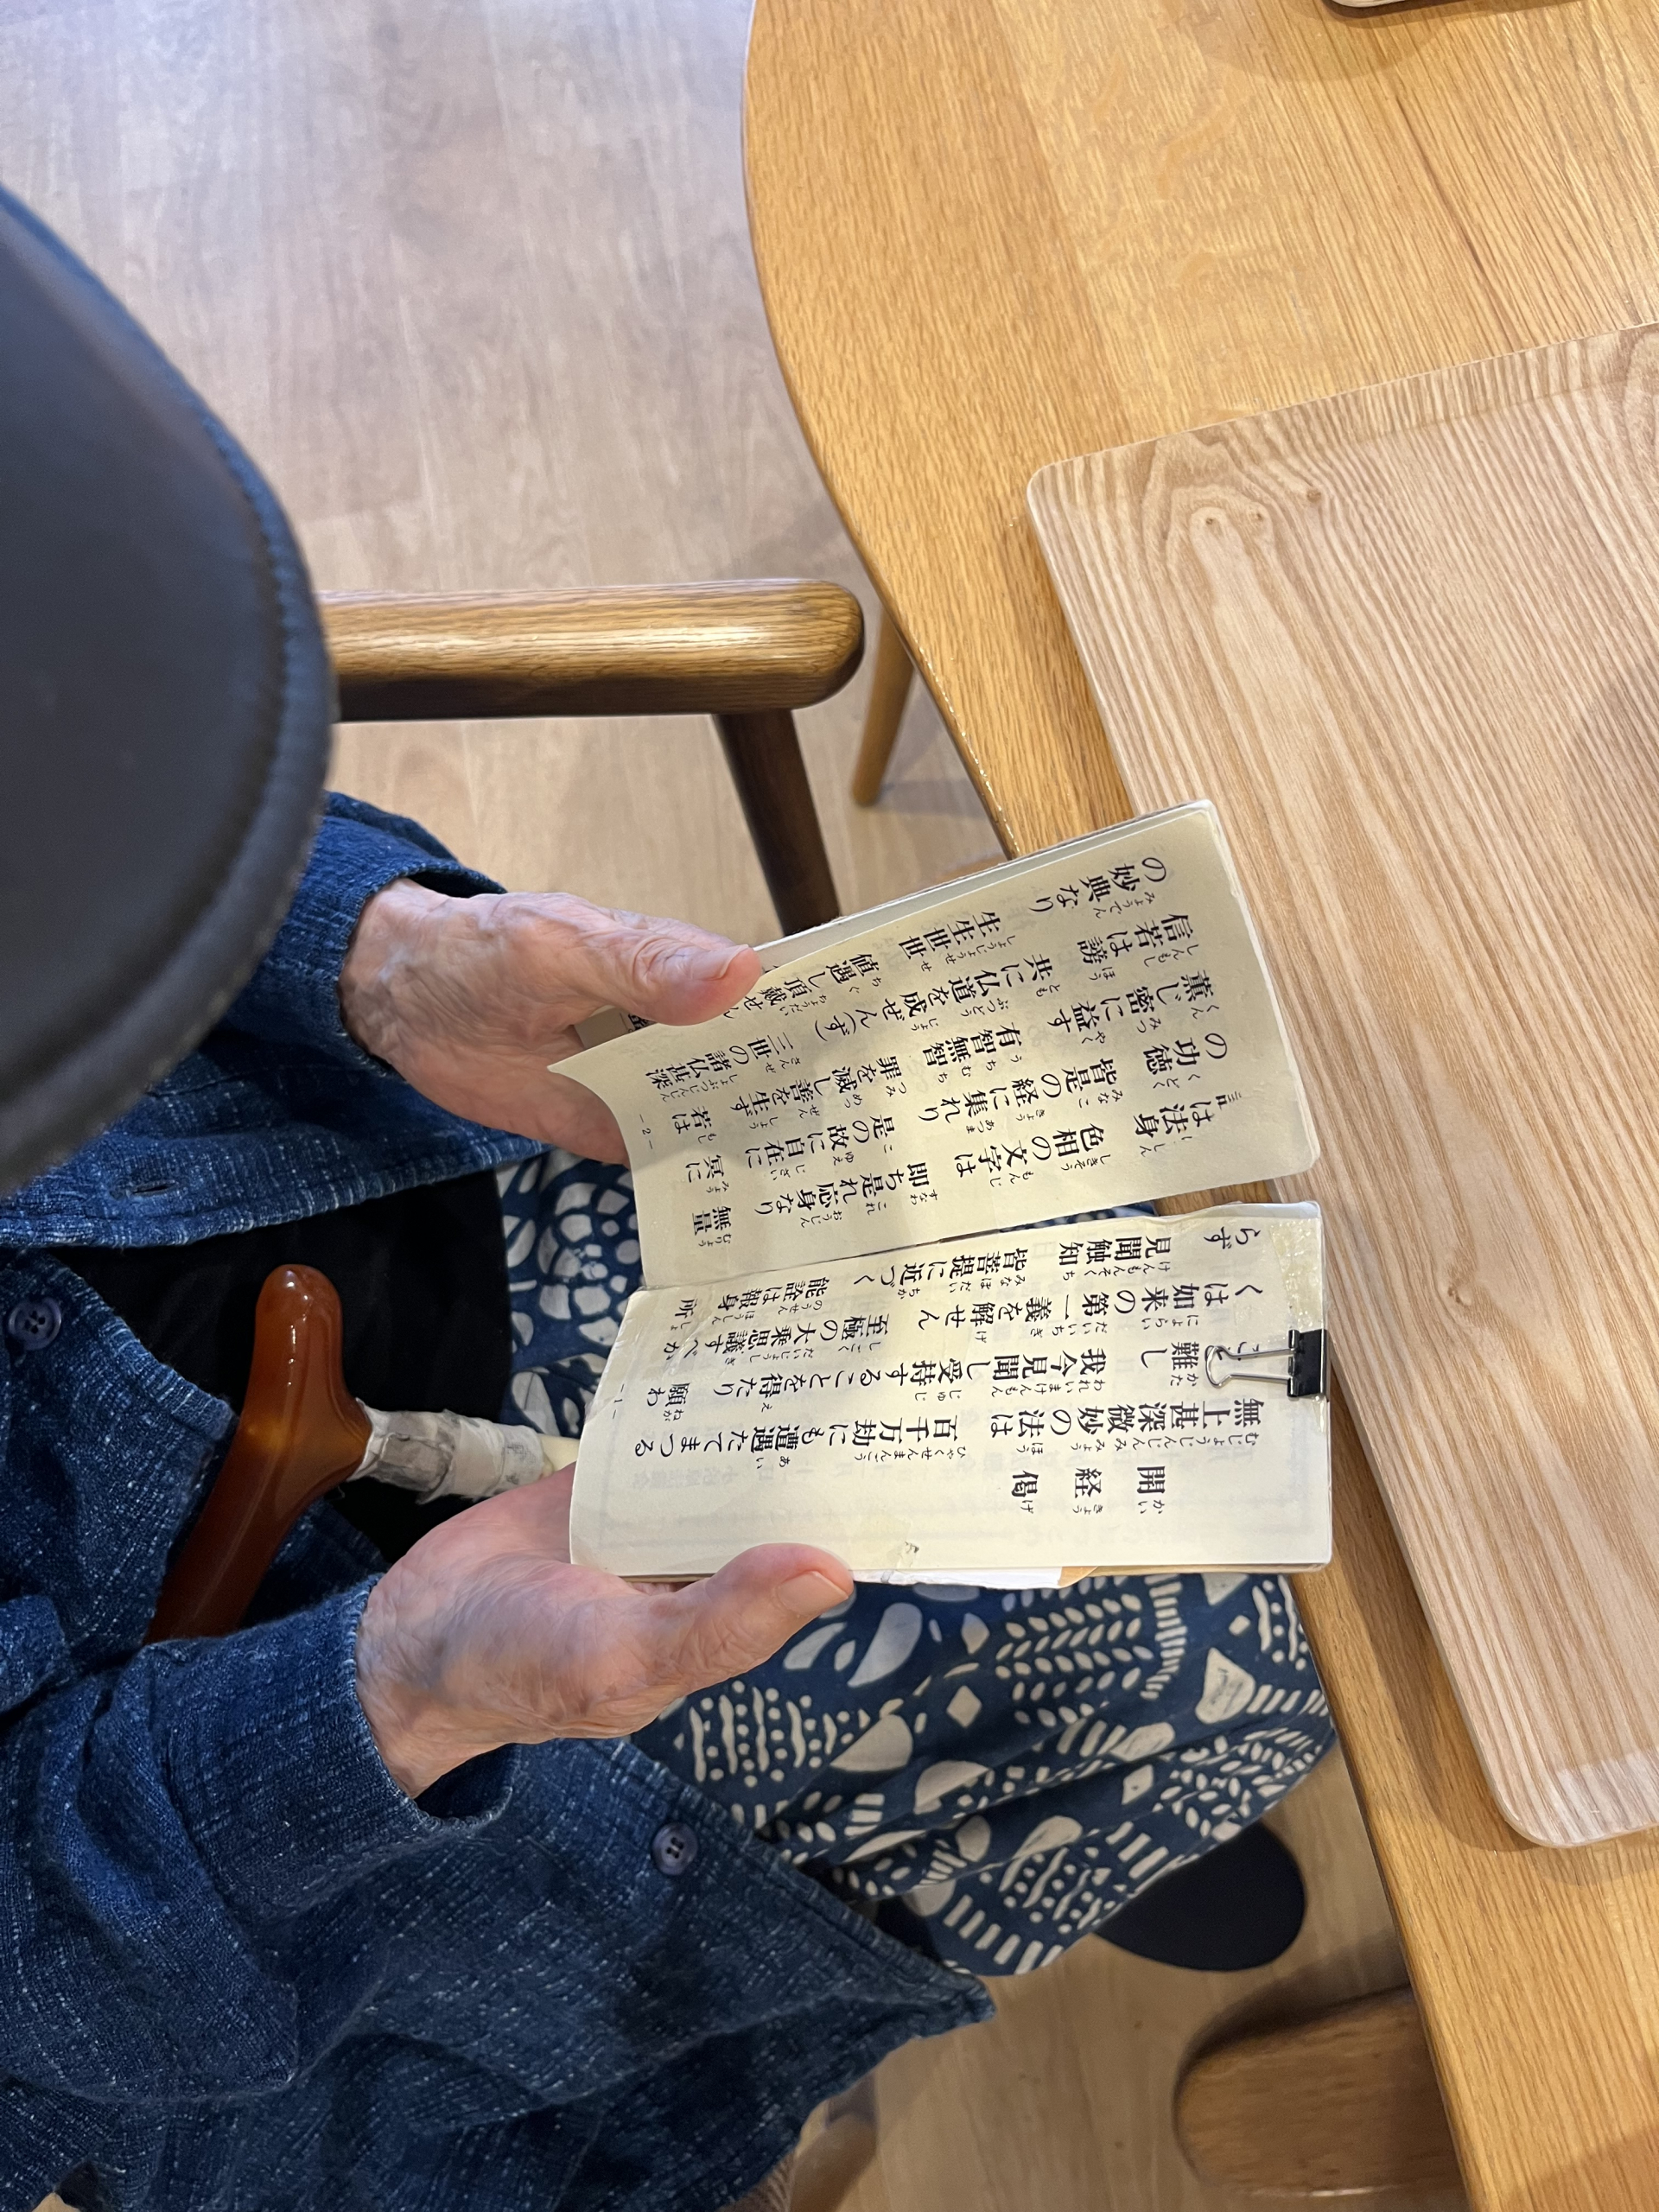 開経偈
無上甚深微妙の法は 百千万劫にも遭遇たてまつる
難し 我今見聞し受持することを得たり 願わ
くは如来の第一義を解せん 至極の大乗思議すべか
らず 見聞触知 皆菩提に近づく 能詮は報身 所
－1－
は法身 色相の文字は 即ち是れ応身なり 無量
の功徳 皆是の経に集れり 是の故に自在に 冥に
薫じ密に益す 有智無智 罪を滅し善を生ず 若は
信若は謗 共に仏道を成ぜん(ず) 三世の諸仏甚深
の妙典なり 生生世世 値遇し頂戴せん
－2－